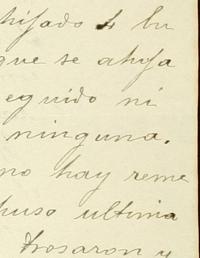 hijado
que se
eguido ni
ninguna.
no hay reme
puso ultima
trosaron y